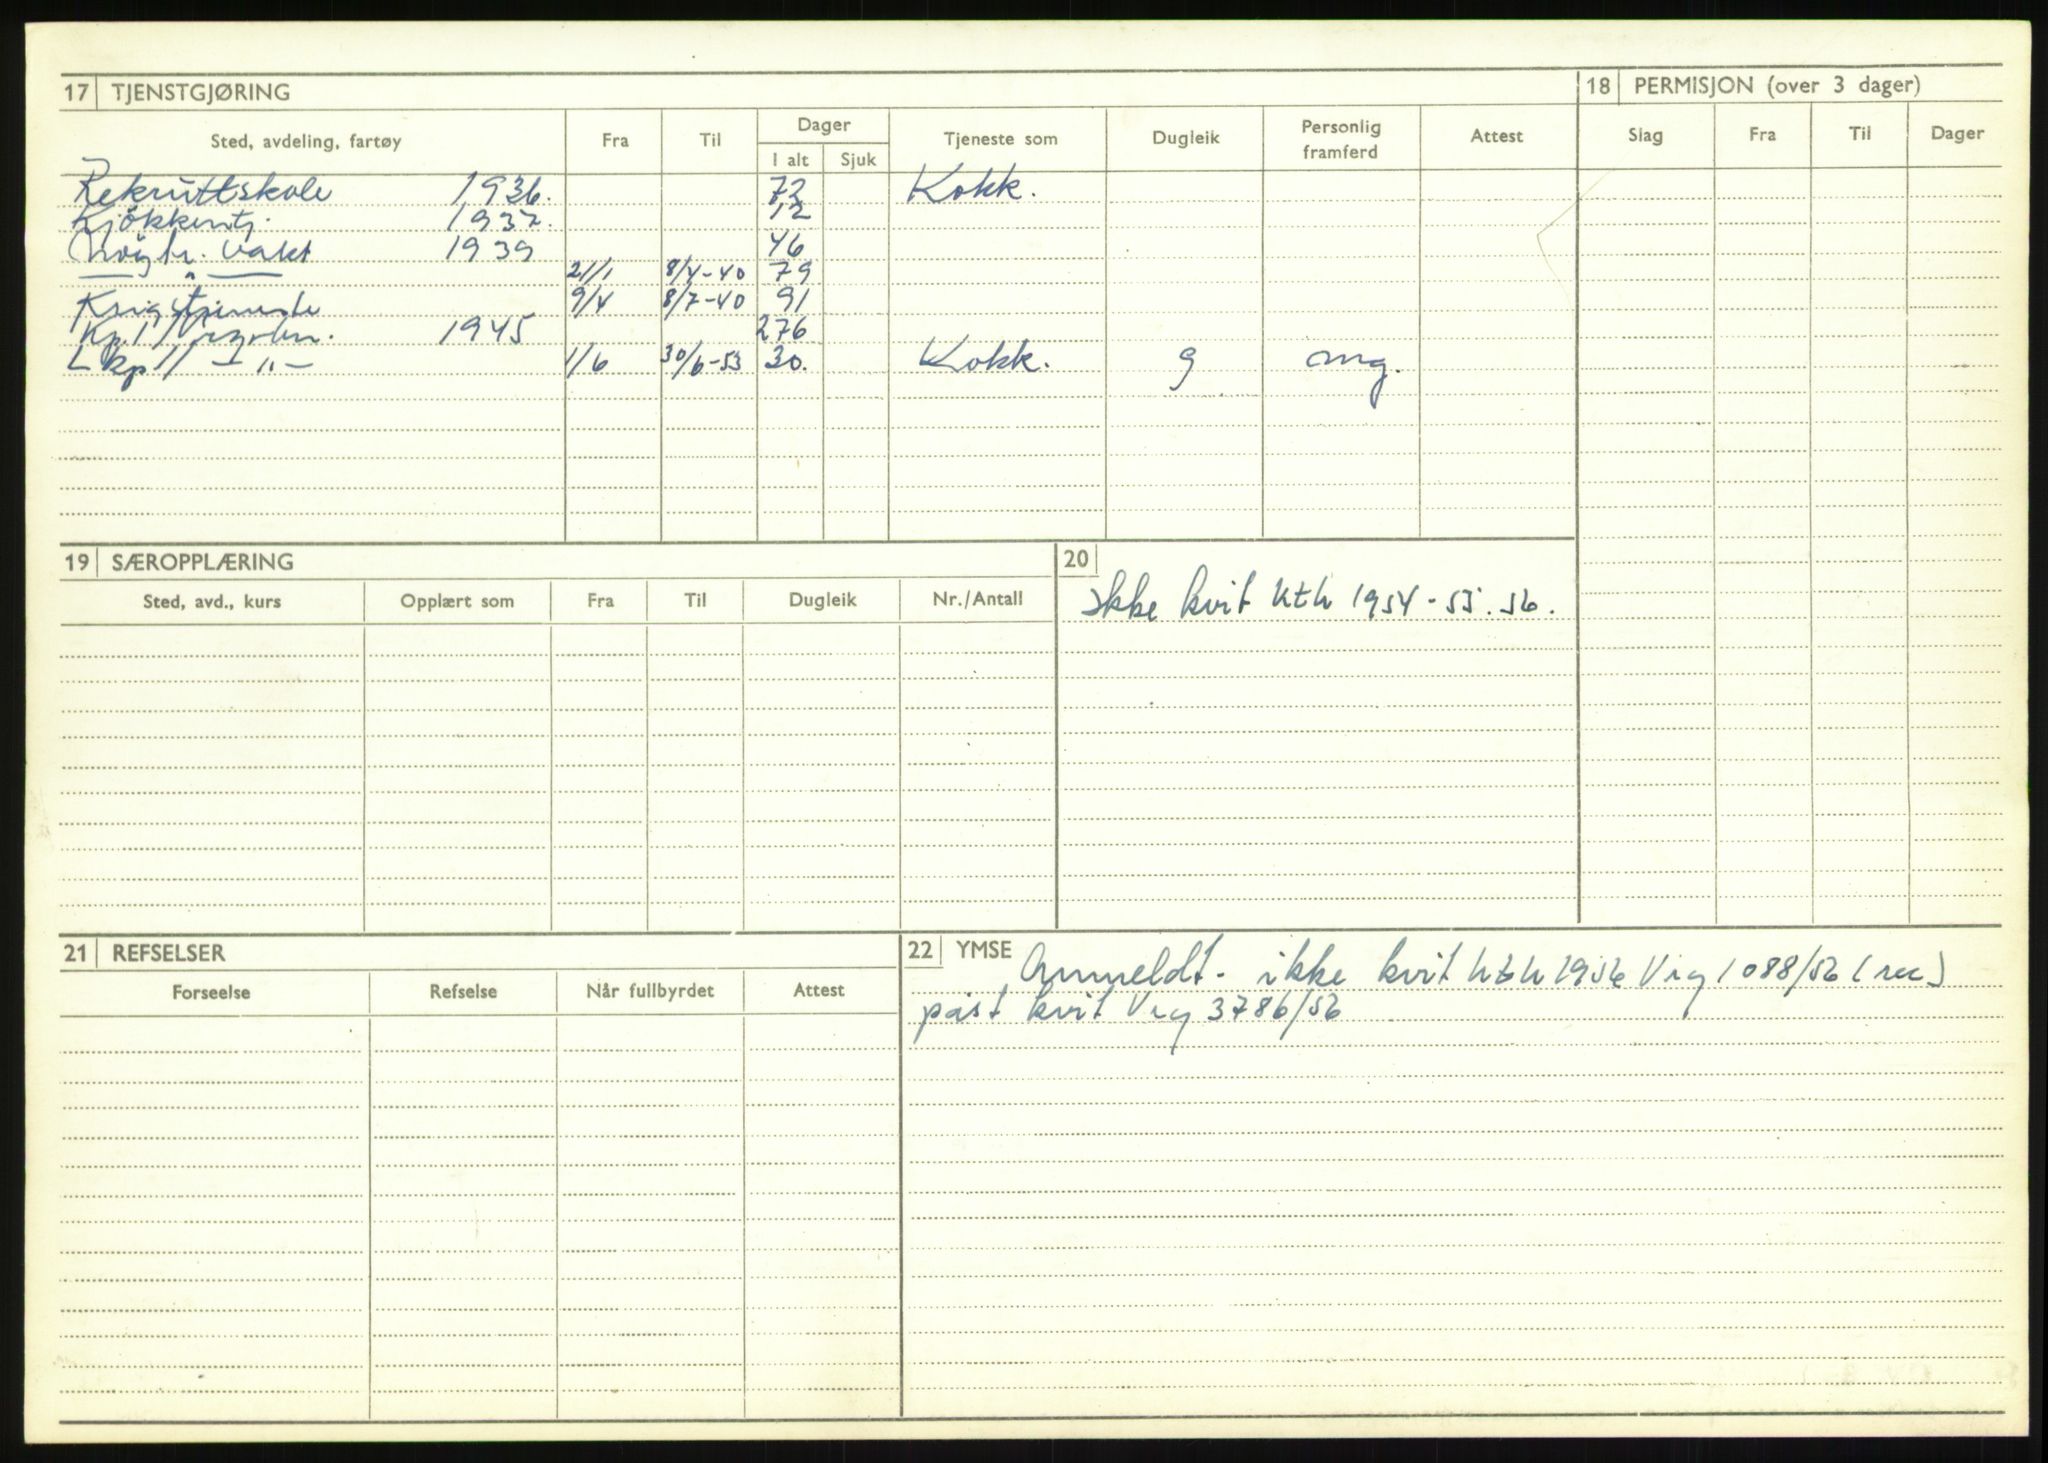 17 TJENSTGJØRING
Sted, avdeling, fartøy Fra Til Dager I alt Sjuk Tjeneste som Dugleik Personlig framferd Attest
Rekruttskole 1936. 72 Kokk.
Kjökkentj. 1937. 12
Nöytr. vakt 1939 46
— " — 21/1 8/4-40 79
Krigstjeneste 9/4 8/7-40 91
Kp. 1945 276
Lkp — " — 1/6 30/6-53 30. Kokk. g mg.
18 PERMISJON (over 3 dager)
Slag Fra Til Dager
19 SÆROPPLÆRING
Sted, avd., kurs Opplært som Fra Til Dugleik Nr./Antall
20
Ikke kvit hth 1954-55.56.
21 REFSELSER
Forseelse Refselse Når fullbyrdet Attest
22 YMSE
Anmeldt. ikke kvit hth 1956 Vrg 1088/56 (rec)
påst kvit Vrg 3786/56